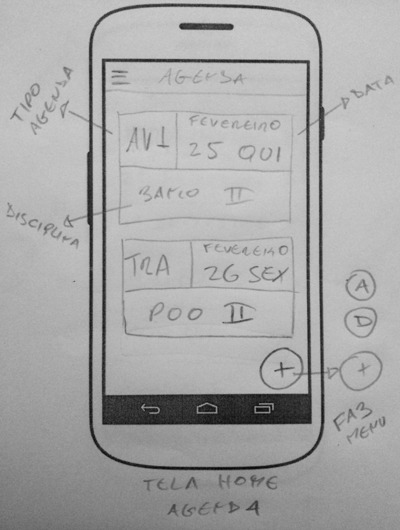 AGENDA
TIPO
AGENDA
DATA
AV1
FEVEREIRO
25 QUI
BANCO II
DISCIPLINA
TRA
FEVEREIRO
26 SEX
POO II
A
D
+
+
FAB
MENU
TELA HOME
AGENDA